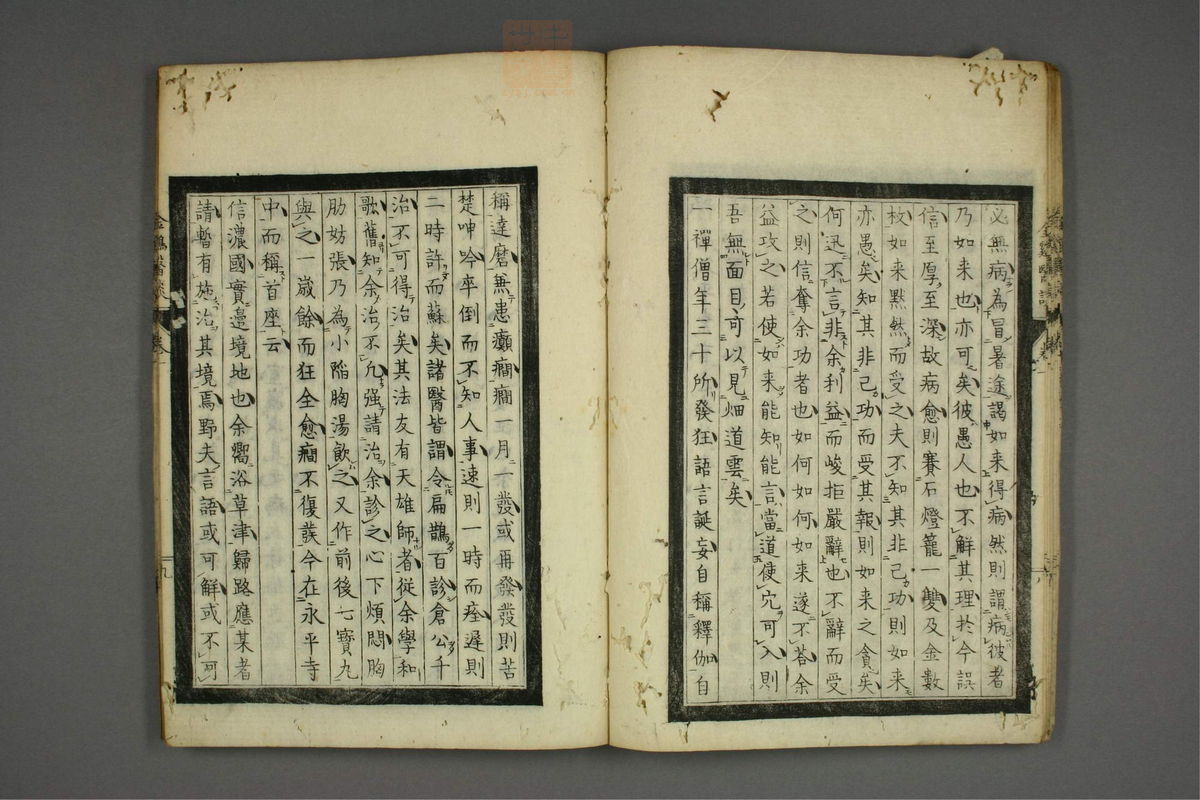 必無病為冒暑途謁如来得病然則謂病彼者
乃如来也亦可矣彼愚人也不解其理於今誤
信至厚至深故病愈則賽石燈籠一雙及金數
枚如来黙然而受之夫不知其非己功則如来
亦愚矣知其非己功而受其報則如来之貪矣
何迅不言非余利益而峻拒嚴辭也不辭而受
之則信奪余功者也如何如何如来遂不荅余
益攻之若使如来能知能言當道使穴可入則
吾無面目可以見畑道雲矣
一禪僧年三十所發狂語言誕妄自稱釋伽自
稱達磨兼患癲癇癇一月一發或再發發則苦
楚呻吟卒倒而不知人事速則一時而痊遲則
二時許而蘇矣諸醫皆謂令扁鵲百診倉公千
治不可得治矣其法友有天雄師者從余學和
歌舊知余治不凡強請治余診之心下煩悶胸
肋妨張乃為小陥胸湯飲之又作前後七寳九
與之一歳餘而狂全愈癇不復發今在永平寺
中而稱首座云
信濃國實邉境地也余嚮浴草津歸路應某者
請暫有施治其境焉野夫言語或可解或不可